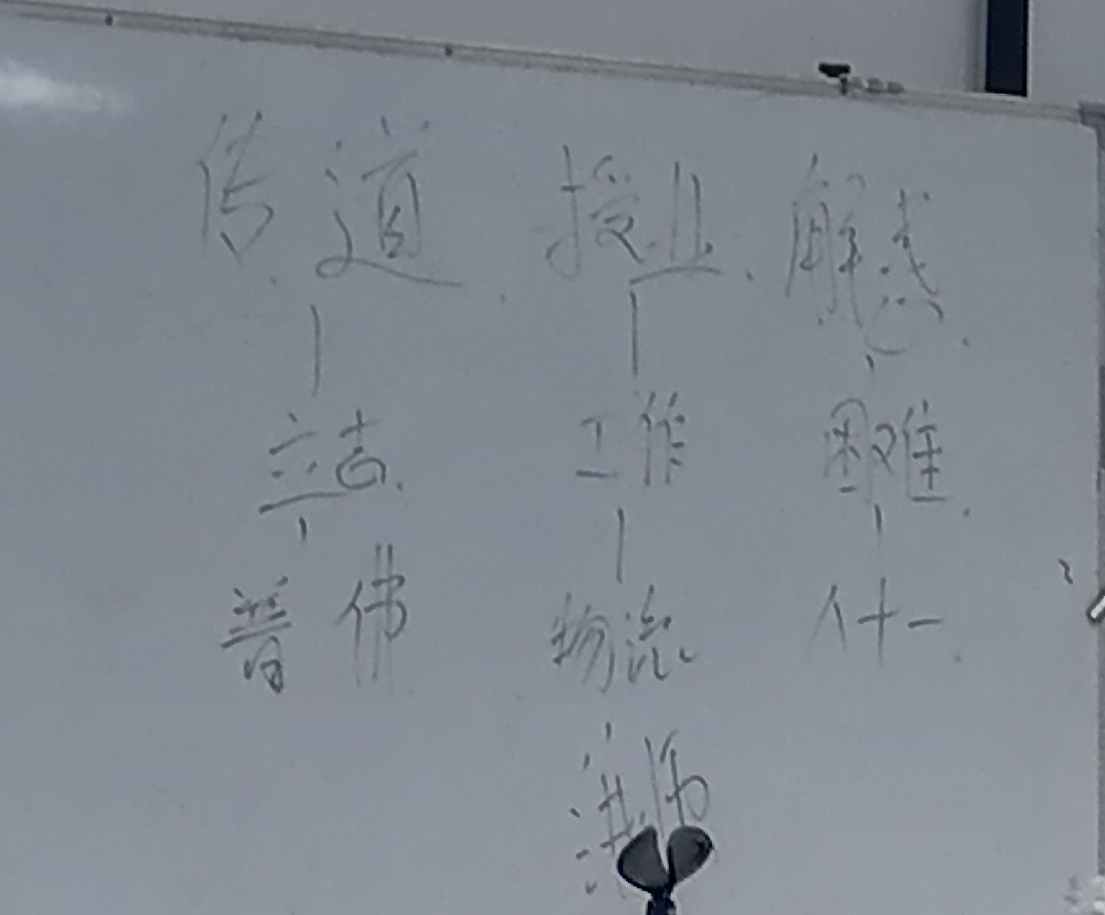 传道、授业、解惑.
立志. 工作 困难.
普佛 物流 八十一.
讲师